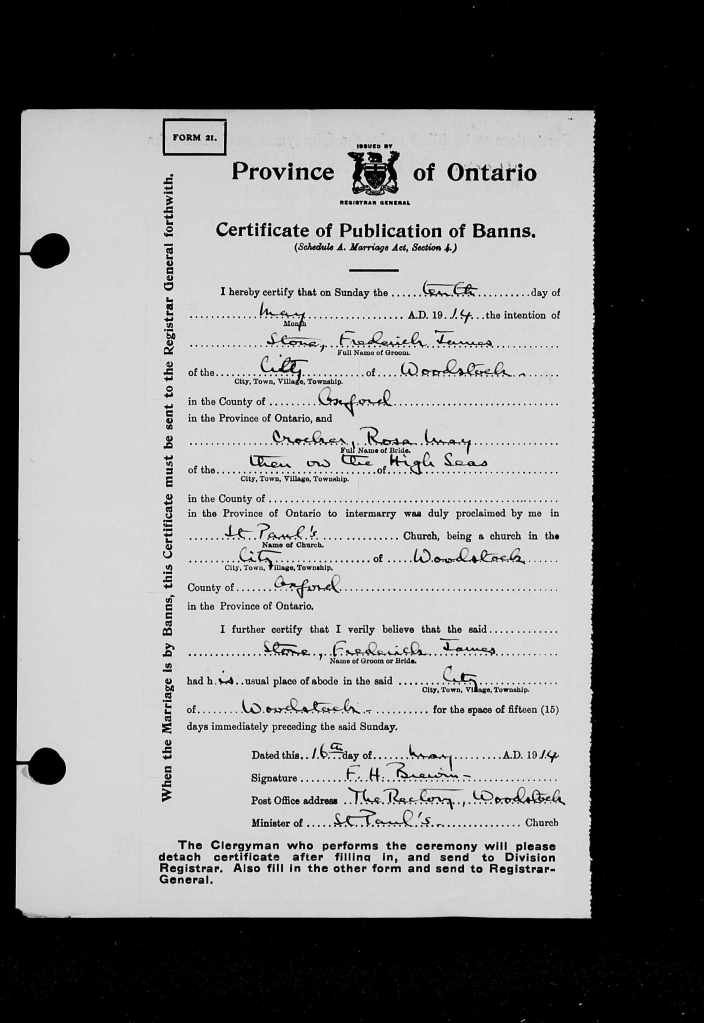 FORM 21.
ISSUED BY
Province of Ontario
REGISTRAR GENERAL
Certificate of Publication of Banns.
(Schedule A. Marriage Act, Section 4.)
When the Marriage is by Banns, this Certificate must be sent to the Registrar General forthwith.
I hereby certify that on Sunday the tenth day of
May A.D. 1914 the intention of
Month
Stone, Frederick James
Full Name of Groom.
of the City of Woodstock
City, Town, Village, Township.
in the County of Oxford
in the Province of Ontario, and
Crocker, Rosa May
Full Name of Bride.
of the then on the High Seas of
City, Town, Village, Township.
in the County of
in the Province of Ontario to intermarry was duly proclaimed by me in
St Paul's Church, being a church in the
Name of Church.
City of Woodstock
City, Town, Village, Township.
County of Oxford
in the Province of Ontario.
I further certify that I verily believe that the said
Stone, Frederick James
Name of Groom or Bride.
had his usual place of abode in the said City
City, Town, Village, Township.
of Woodstock - for the space of fifteen (15)
days immediately preceding the said Sunday.
Dated this 16th day of May A.D. 1914
Signature F. H. Brewin -
Post Office address The Rectory, Woodstock
Minister of St Paul's Church
The Clergyman who performs the ceremony will please
detach certificate after filling in, and send to Division
Registrar. Also fill in the other form and send to Registrar-
General.